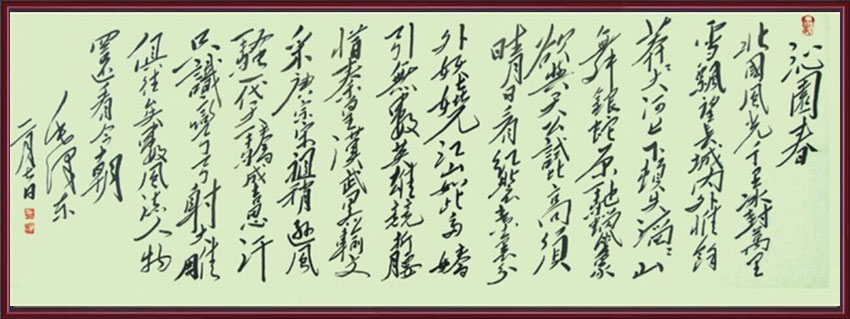 沁園春
北國風光千里冰封萬里
雪飄望長城内外惟餘
莽々大河上下頓失滔々山
舞銀蛇原馳蠟象
欲與天公試比高須
晴日看紅裝素裹分
外妖嬈江山如此多嬌
引無數英雄競折腰
惜秦皇漢武略輸文
采唐宗宋祖稍遜風
騷一代天驕成吉思汗
只識彎弓射大雕
俱往矣數風流人物
還看今朝
毛澤東
二月七日